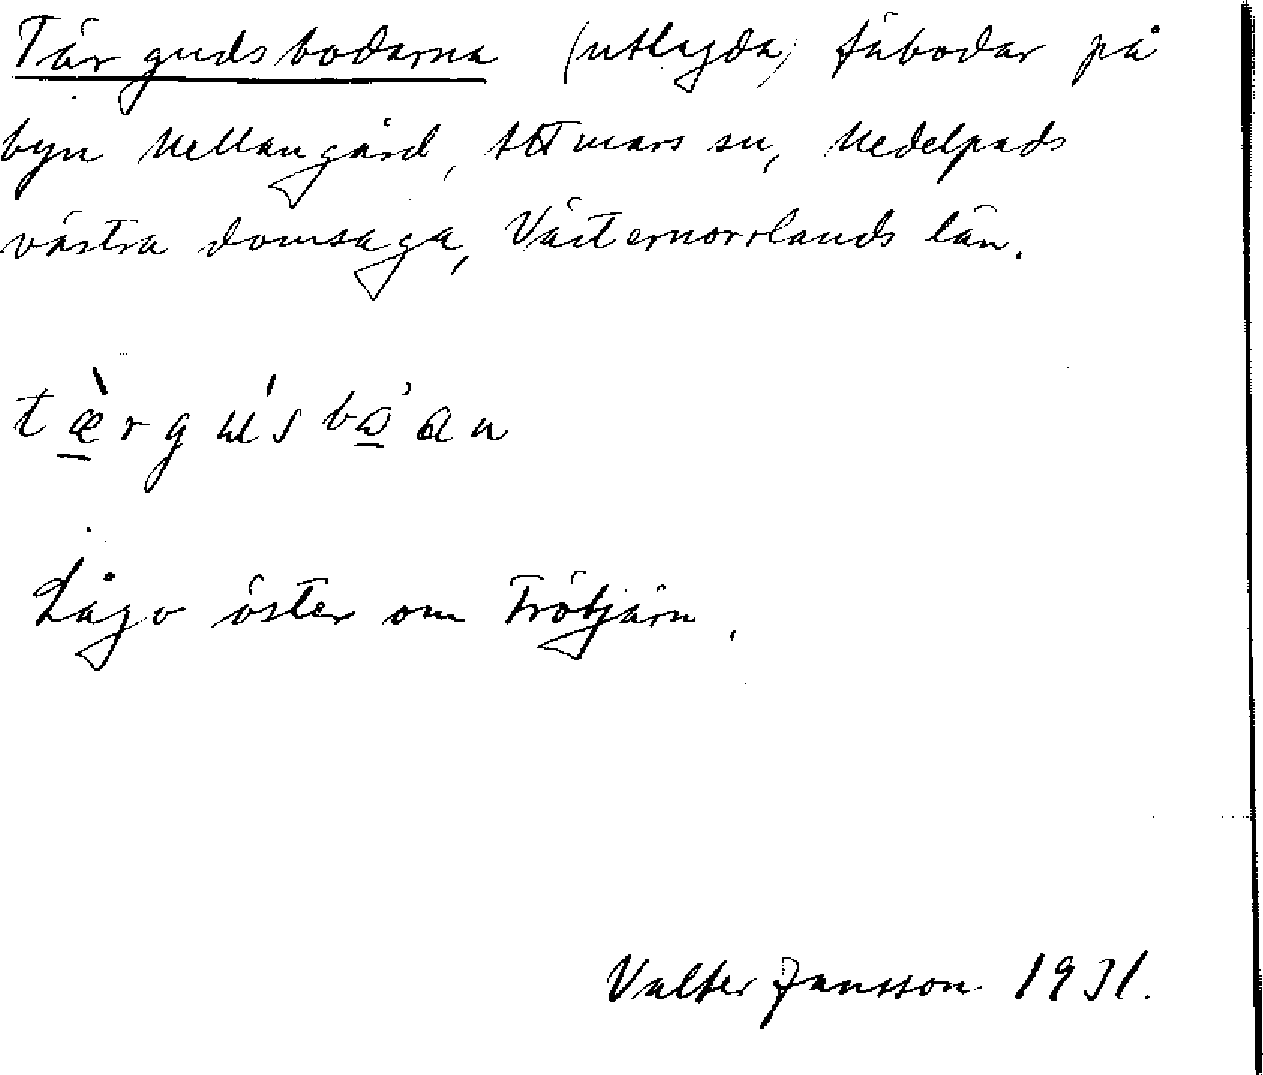 Tärgudsbodarna (utlagda) fäbodar på
byn Mellangård, Attmars sn, Medelpads
västra domsaga, Västernorrlands län.
tæ̀rgʉ́sbɷ̀an
Lågo öster om Trötjärn.
Valter Jansson 1931.